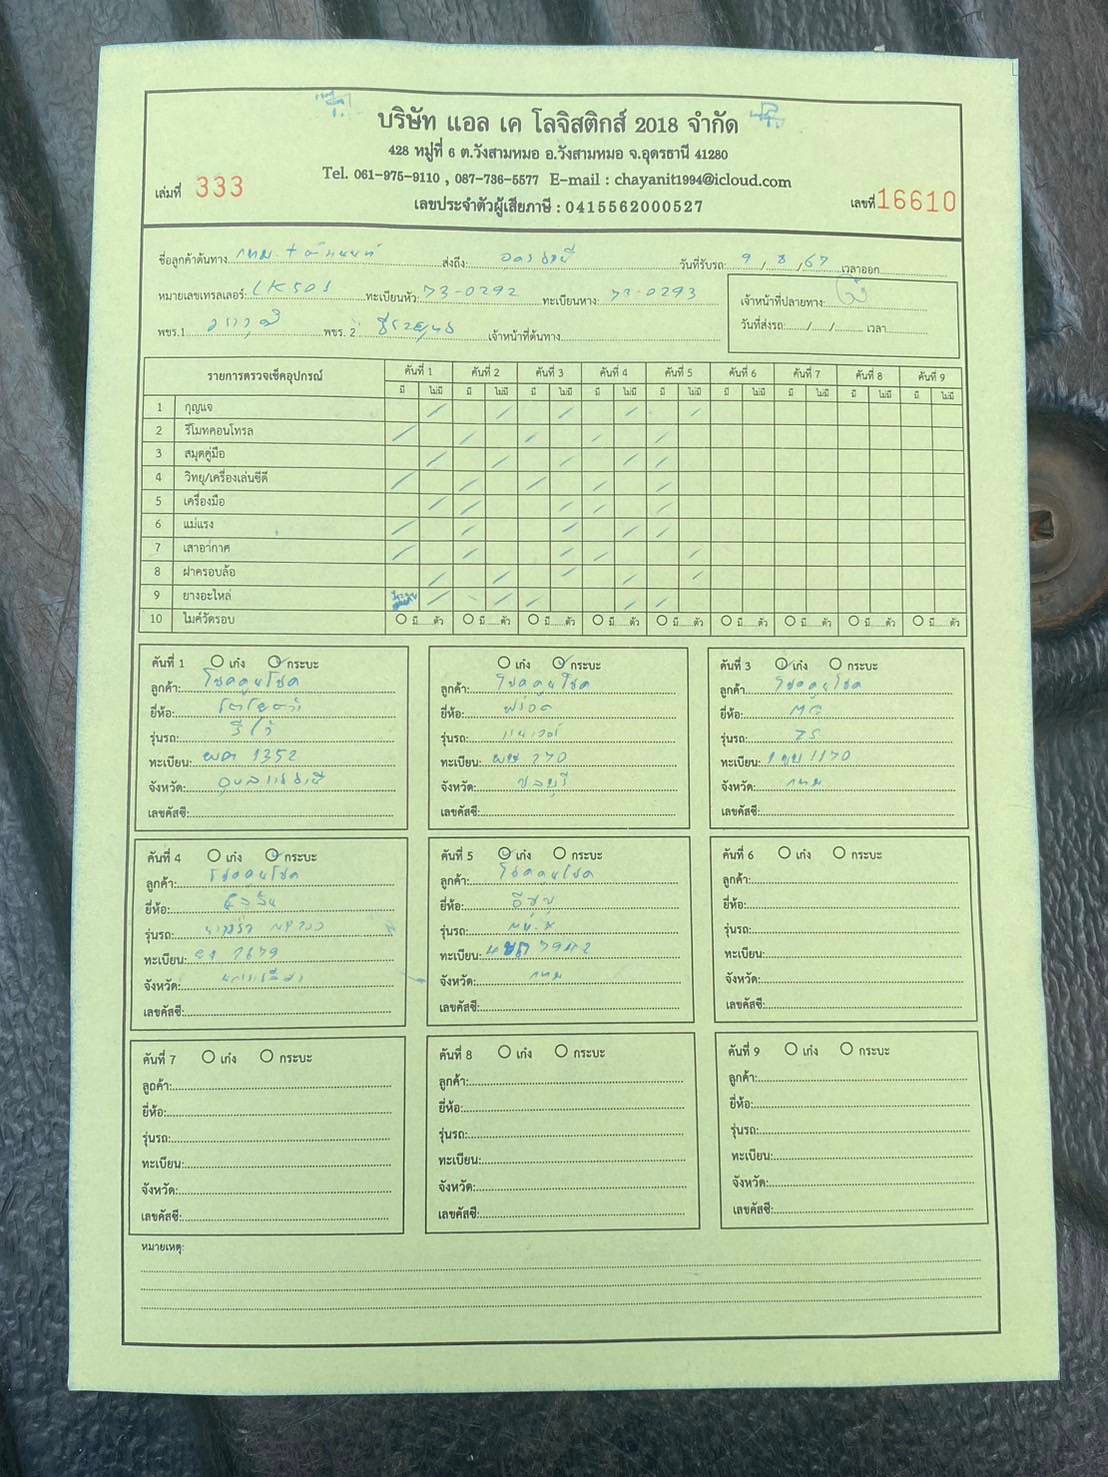 บริษัท แอล เค โลจิสติกส์ 2018 จำกัด
428 หมู่ที่ 6 ต.วังสามหมอ อ.วังสามหมอ จ.อุดรธานี 41280
Tel. 061-975-9110 , 087-736-5577 E-mail : chayanit1994@icloud.com
เล่มที่ 333 เลขประจำตัวผู้เสียภาษี : 0415562000527 เลขที่ 16610
ชื่อลูกค้าต้นทาง กทม. + ส่งถึง: อุดรธานี วันที่รับรถ: 9 / 8 / 67 เวลาออก
หมายเลขเทรลเลอร์: LK501 ทะเบียนหัว: 73-0292 ทะเบียนหาง: 73-0293 เจ้าหน้าที่ปลายทาง:
พขร.1 พขร. 2 เจ้าหน้าที่ต้นทาง วันที่ส่งรถ: / / เวลา
รายการตรวจเช็คอุปกรณ์ คันที่ 1 คันที่ 2 คันที่ 3 คันที่ 4 คันที่ 5 คันที่ 6 คันที่ 7 คันที่ 8 คันที่ 9
มี ไม่มี มี ไม่มี มี ไม่มี มี ไม่มี มี ไม่มี มี ไม่มี มี ไม่มี มี ไม่มี มี ไม่มี
1 กุญแจ
2 รีโมทคอนโทรล
3 สมุดคู่มือ
4 วิทยุ/เครื่องเล่นซีดี
5 เครื่องมือ
6 แม่แรง
7 เสาอากาศ
8 ฝาครอบล้อ
9 ยางอะไหล่
10 ไมค์วัดรอบ มี ตัว มี ตัว มี ตัว มี ตัว มี ตัว มี ตัว มี ตัว มี ตัว มี ตัว
คันที่ 1 เก๋ง กระบะ
ลูกค้า: โชคคูนโชค
ยี่ห้อ: โตโยต้า
รุ่นรถ: รีโว้
ทะเบียน: ผค 1352
จังหวัด: อุบลราชธานี
เลขคัสซี:
เก๋ง กระบะ
ลูกค้า: โชคคูนโชค
ยี่ห้อ: ฟอร์ด
รุ่นรถ:
ทะเบียน: ผษ 270
จังหวัด: ชลบุรี
เลขคัสซี:
คันที่ 3 เก๋ง กระบะ
ลูกค้า: โชคคูนโชค
ยี่ห้อ: MG
รุ่นรถ: ZS
ทะเบียน: 1170
จังหวัด: กทม
เลขคัสซี:
คันที่ 4 เก๋ง กระบะ
ลูกค้า: โชคคูนโชค
ยี่ห้อ: นิสสัน
รุ่นรถ: นาวาร่า
ทะเบียน: 7679
จังหวัด:
เลขคัสซี:
คันที่ 5 เก๋ง กระบะ
ลูกค้า: โชคคูนโชค
ยี่ห้อ: อีซูซุ
รุ่นรถ:
ทะเบียน: 7942
จังหวัด: กทม
เลขคัสซี:
คันที่ 6 เก๋ง กระบะ
ลูกค้า:
ยี่ห้อ:
รุ่นรถ:
ทะเบียน:
จังหวัด:
เลขคัสซี:
คันที่ 7 เก๋ง กระบะ
ลูกค้า:
ยี่ห้อ:
รุ่นรถ:
ทะเบียน:
จังหวัด:
เลขคัสซี:
คันที่ 8 เก๋ง กระบะ
ลูกค้า:
ยี่ห้อ:
รุ่นรถ:
ทะเบียน:
จังหวัด:
เลขคัสซี:
คันที่ 9 เก๋ง กระบะ
ลูกค้า:
ยี่ห้อ:
รุ่นรถ:
ทะเบียน:
จังหวัด:
เลขคัสซี:
หมายเหตุ: